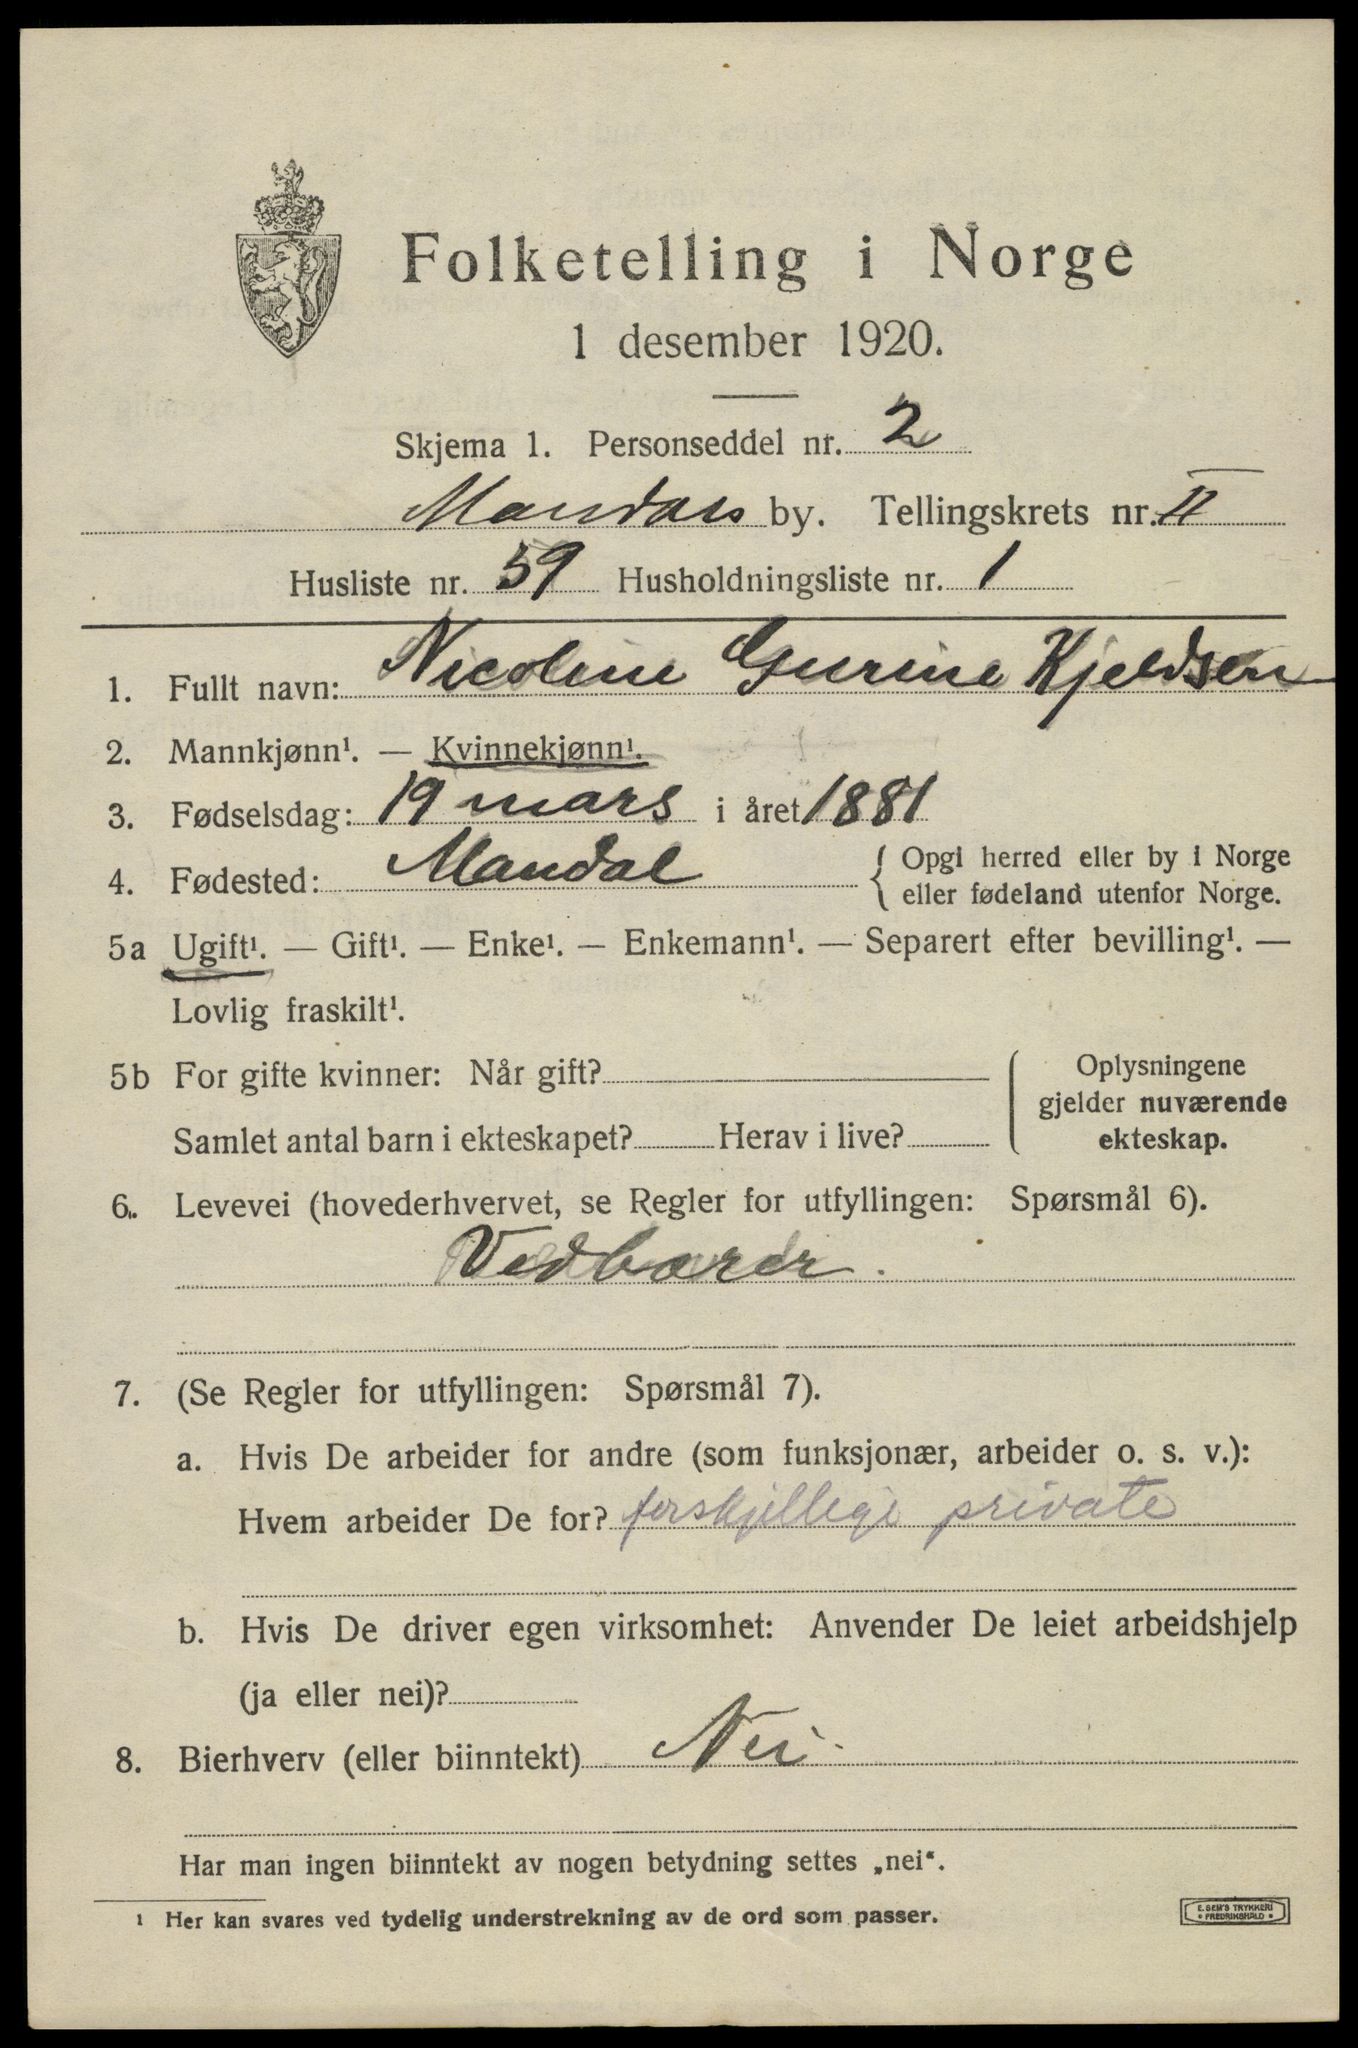 Folketelling i Norge
1 desember 1920.
Skjema 1. Personseddel nr. 2
Mandals by. Tellingskrets nr. II
Husliste nr. 59 Husholdningsliste nr. 1
1. Fullt navn: Nicoline Gurine Kjeldsen
2. Mannkjønn¹. — Kvinnekjønn¹.
3. Fødselsdag: 19 mars i året 1881
4. Fødested: Mandal { Opgi herred eller by i Norge
eller fødeland utenfor Norge.
5a Ugift¹. — Gift¹. — Enke¹. — Enkemann¹. — Separert efter bevilling¹. —
Lovlig fraskilt¹.
5b For gifte kvinner: Når gift?
Samlet antal barn i ekteskapet? Herav i live?
Oplysningene
gjelder nuværende
ekteskap.
6. Levevei (hovederhvervet, se Regler for utfyllingen: Spørsmål 6).
Vedbærer.
7. (Se Regler for utfyllingen: Spørsmål 7).
a. Hvis De arbeider for andre (som funksjonær, arbeider o. s. v.):
Hvem arbeider De for? forskjellige private
b. Hvis De driver egen virksomhet: Anvender De leiet arbeidshjelp
(ja eller nei)?
8. Bierhverv (eller biinntekt) Nei.
Har man ingen biinntekt av nogen betydning settes „nei“.
¹ Her kan svares ved tydelig understrekning av de ord som passer.
E. SEM'S TRYKKERI
• FREDRIKSHALD •